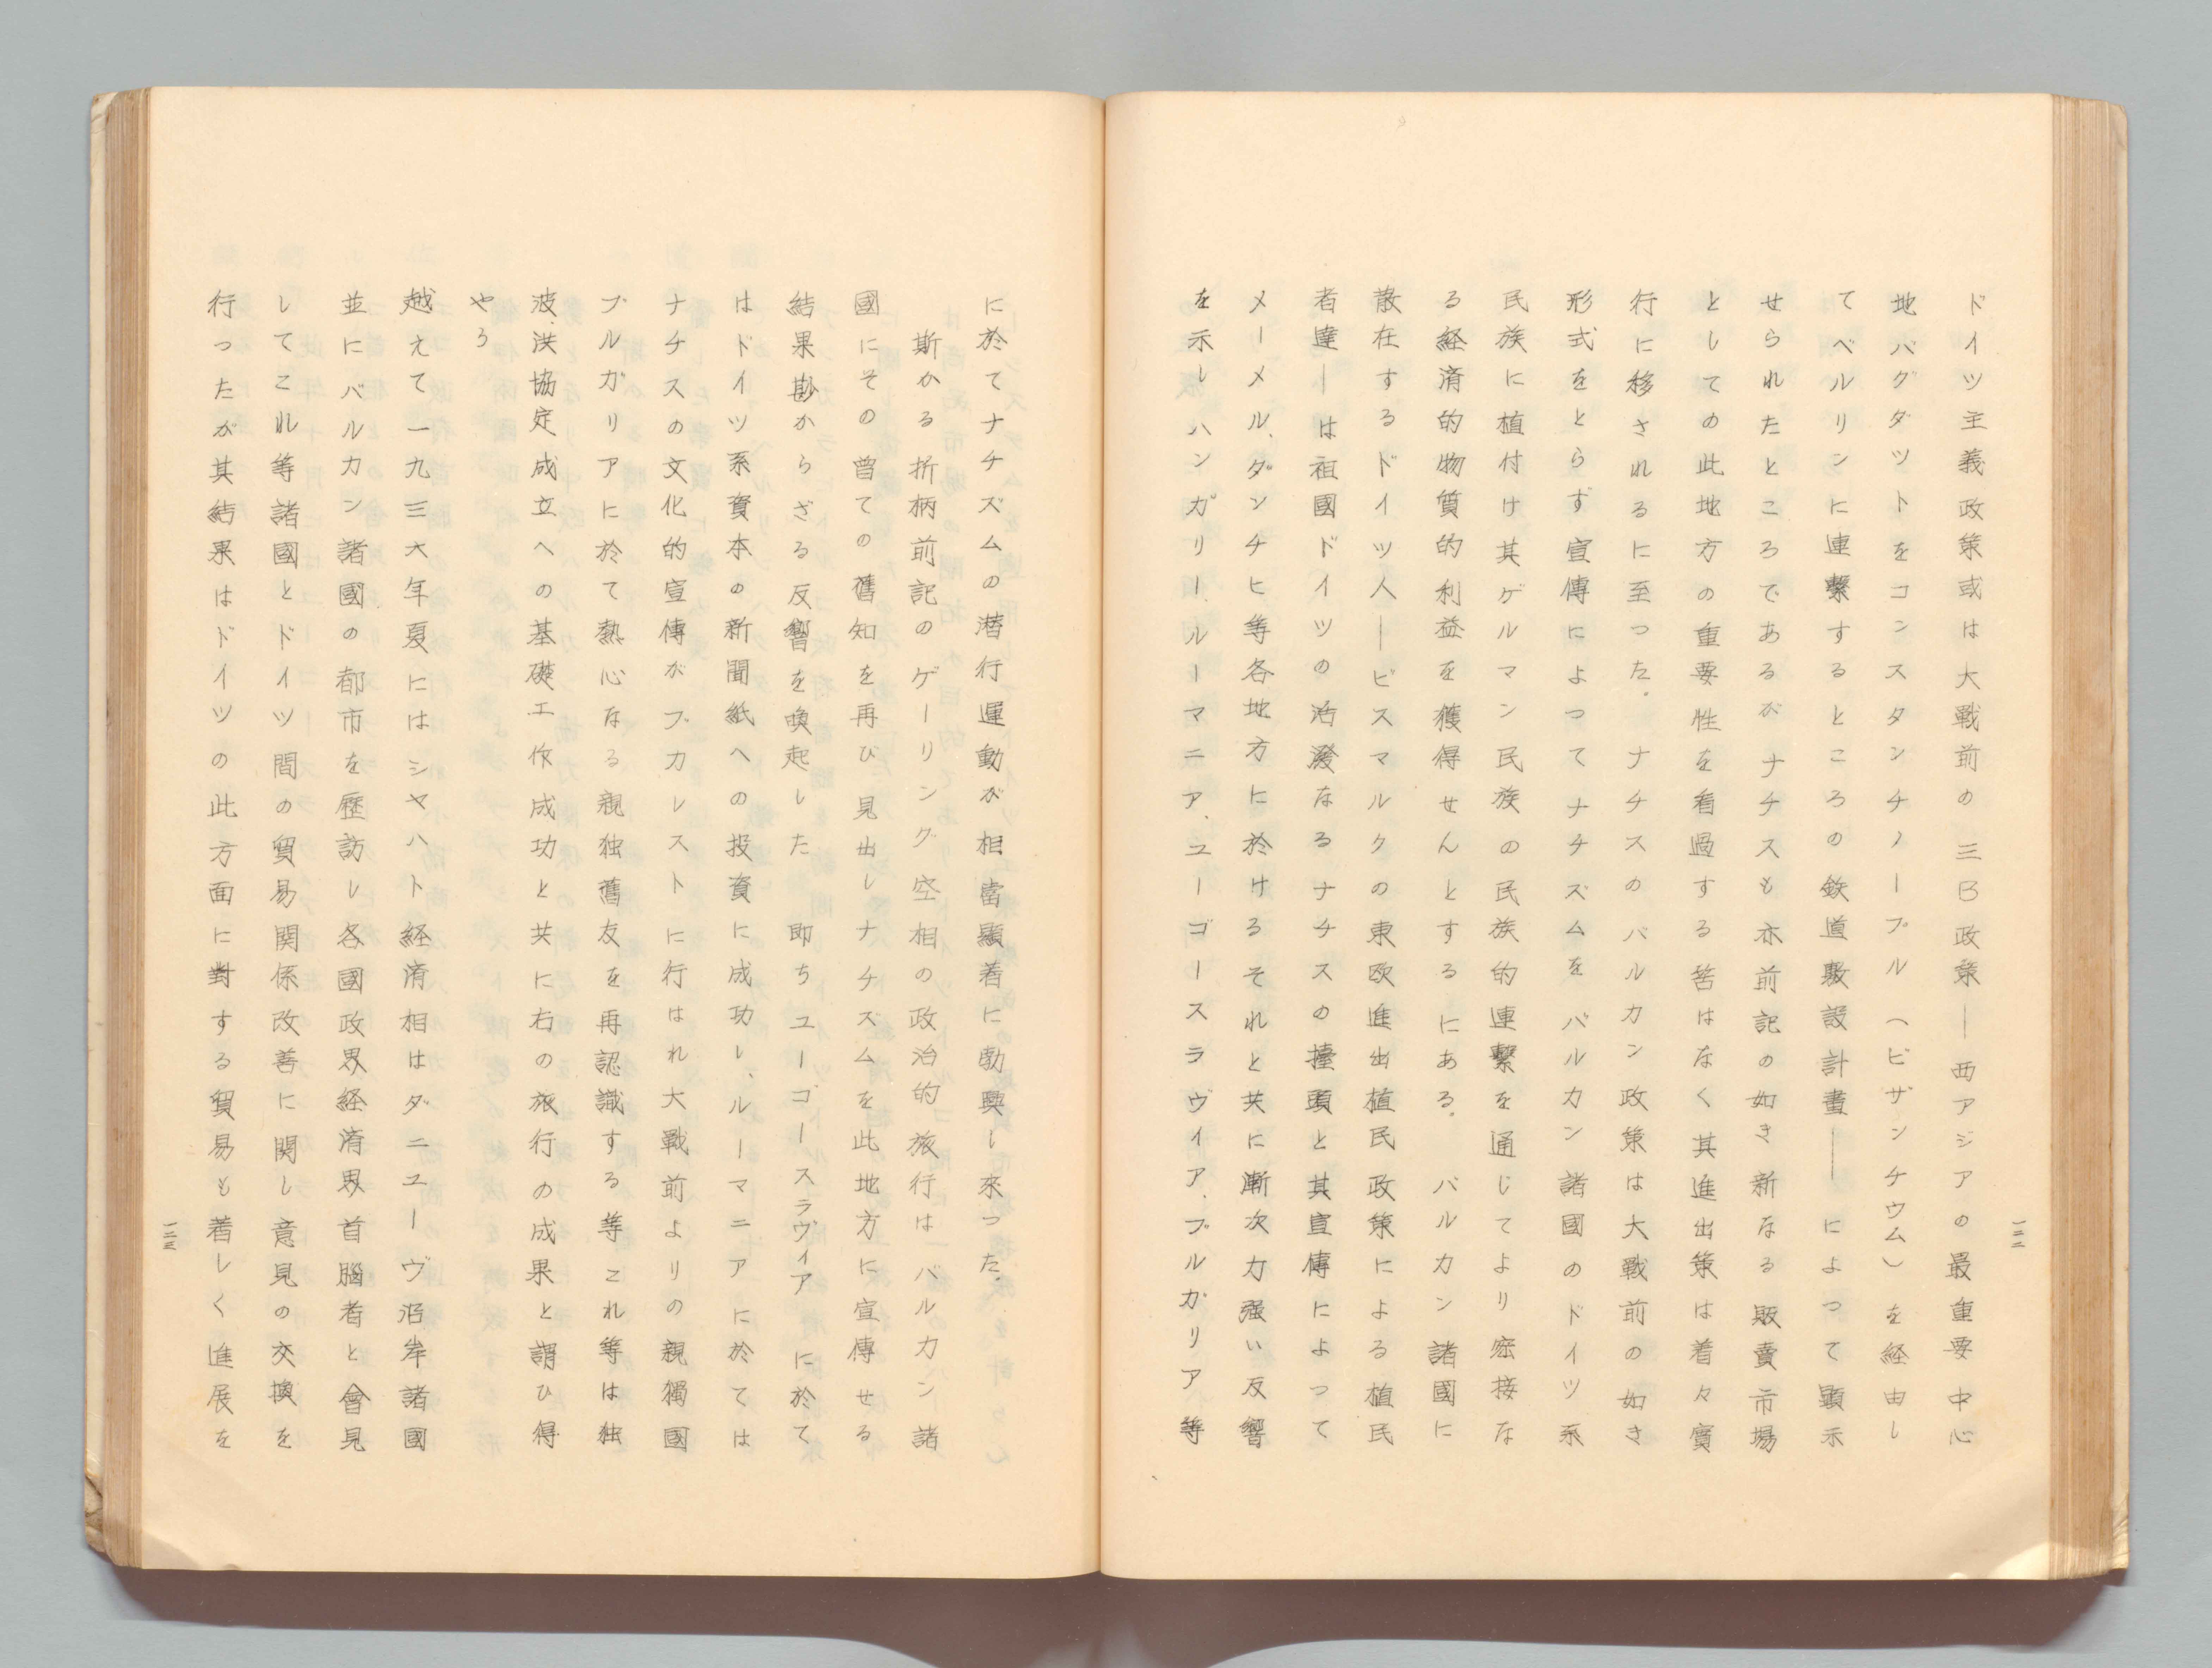 ドイツ主義政策或は大戰前の三B政策―西アジアの最重要中心
地バグダツトをコンスタンチノープル（ビザンチウム）を経由し
てベルリンに連繫するところの鉄道敷設計畫――によつて顕示
せられたところであるがナチスも亦前記の如き新なる販賣市場
としての此地方の重要性を看過する筈はなく其進出策は着々實
行に移されるに至つた．ナチスのバルカン政策は大戰前の如き
形式をとらず宣傳によつてナチズムをバルカン諸國のドイツ系
民族に植付け其ゲルマン民族の民族的連繫を通じてより密接な
る経済的物質的利益を獲得せんとするにある．バルカン諸國に
散在するドイツ人―ビスマルクの東欧進出植民政策による植民
者達―は祖國ドイツの活潑なるナチスの擡頭と其宣傳によつて
メーメル、ダンチヒ等各地方に於けるそれと共に漸次力强い反響
を示しハンガリー、ルーマニア、ユーゴースラヴィア、ブルガリア等
一二二
に於てナチズムの潜行運動が相當顯着に勃興し來つた．
斯かる折柄前記のゲーリング空相の政治的旅行はバルカン諸
國にその曽ての舊知を再び見出しナチズムを此地方に宣傳せる
結果尠からざる反響を喚起した 即ちユーゴースラヴィアに於て
はドイツ系資本の新聞紙への投資に成功し、ルーマニアに於ては
ナチスの文化的宣傳がブカレストに行はれ大戰前よりの親獨國
ブルガリアに於て熱心なる親独舊友を再認識する等これ等は独
波、洪協定成立への基礎工作成功と共に右の旅行の成果と謂ひ得
やろ
越えて一九三六年夏にはシヤハト経済相はダニユーヴ沿岸諸國
並にバルカン諸國の都市を歷訪し各國政界経済界首腦者と會見
してこれ等諸國とドイツ間の貿易関係改善に関し意見の交換を
行つたが其結果はドイツの此方面に對する貿易も着しく進展を
一二三